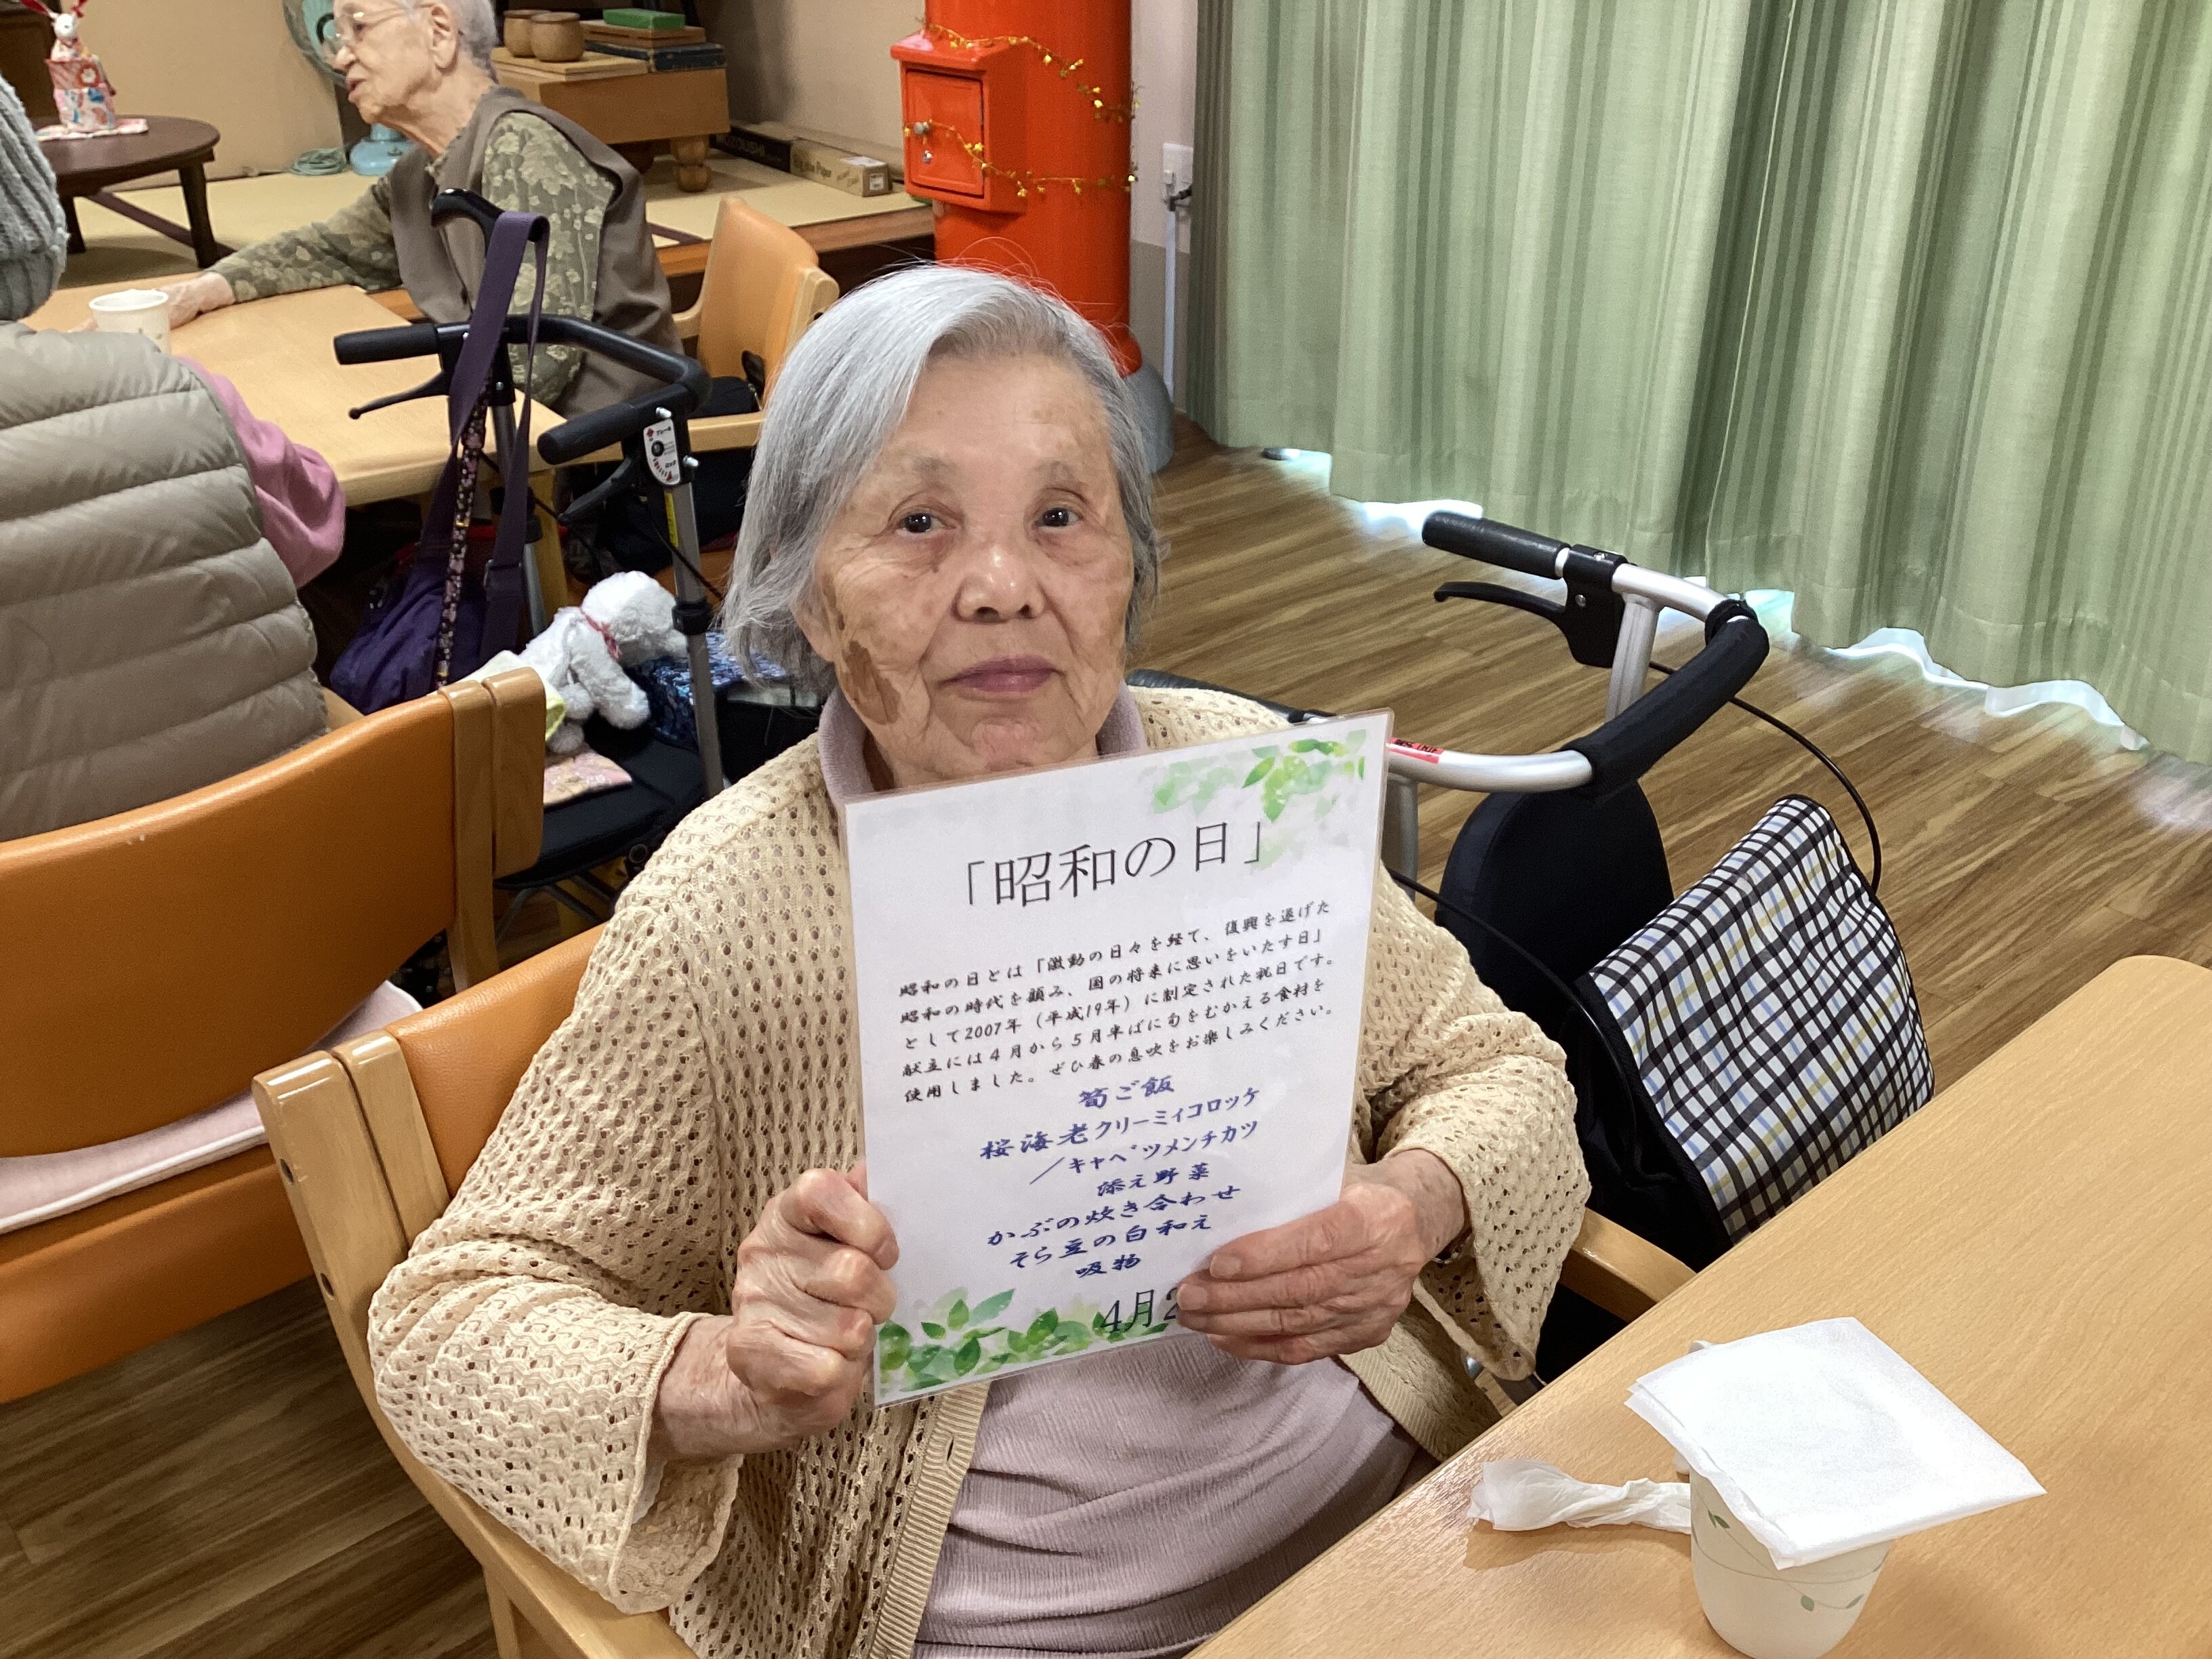 「昭和の日」
昭和の日とは「激動の日々を経て、復興を遂げた
昭和の時代を顧み、国の将来に思いをいたす日」
として2007年（平成19年）に制定された祝日です。
献立には４月から５月半ばに旬をむかえる食材を
使用しました。ぜひ春の息吹をお楽しみください。
筍ご飯
桜海老クリーミィコロッケ
／キャベツメンチカツ
添え野菜
かぶの炊き合わせ
そら豆の白和え
吸物
4月2